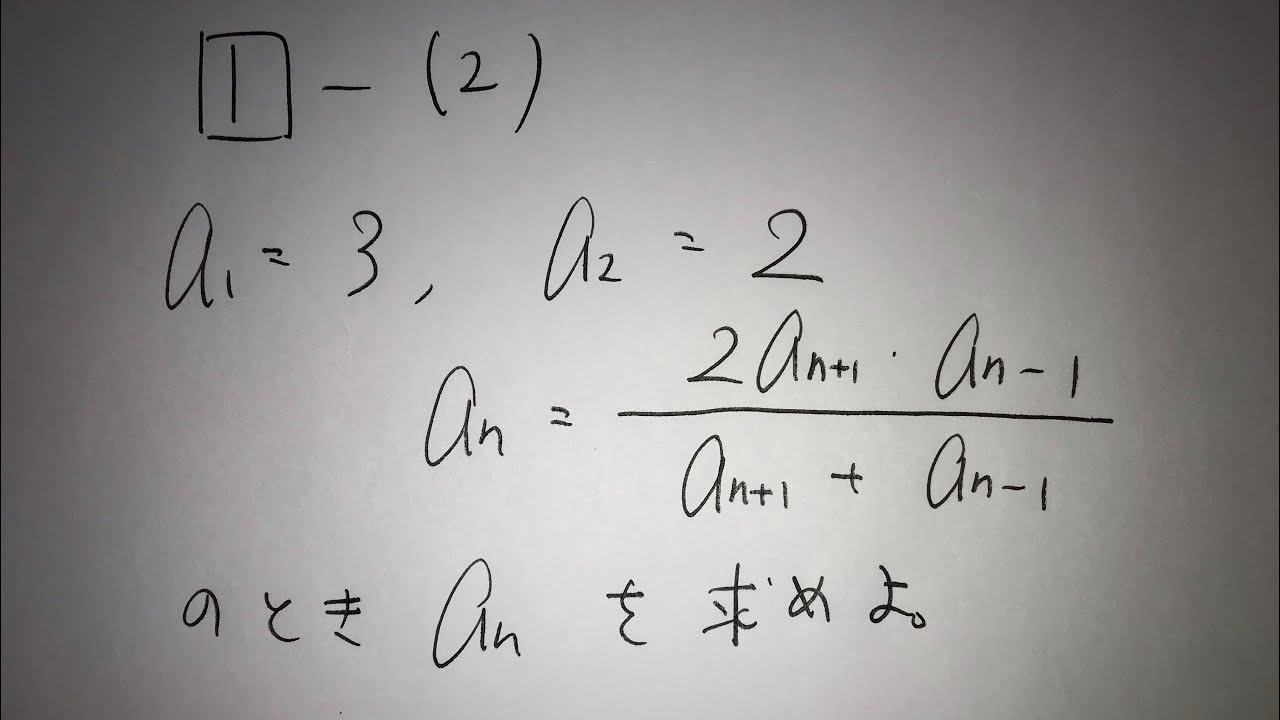 1 - (2)
a₁ = 3, a₂ = 2
aₙ = \frac{2aₙ₊₁ · aₙ₋₁}{aₙ₊₁ + aₙ₋₁}
のとき aₙ を求めよ。